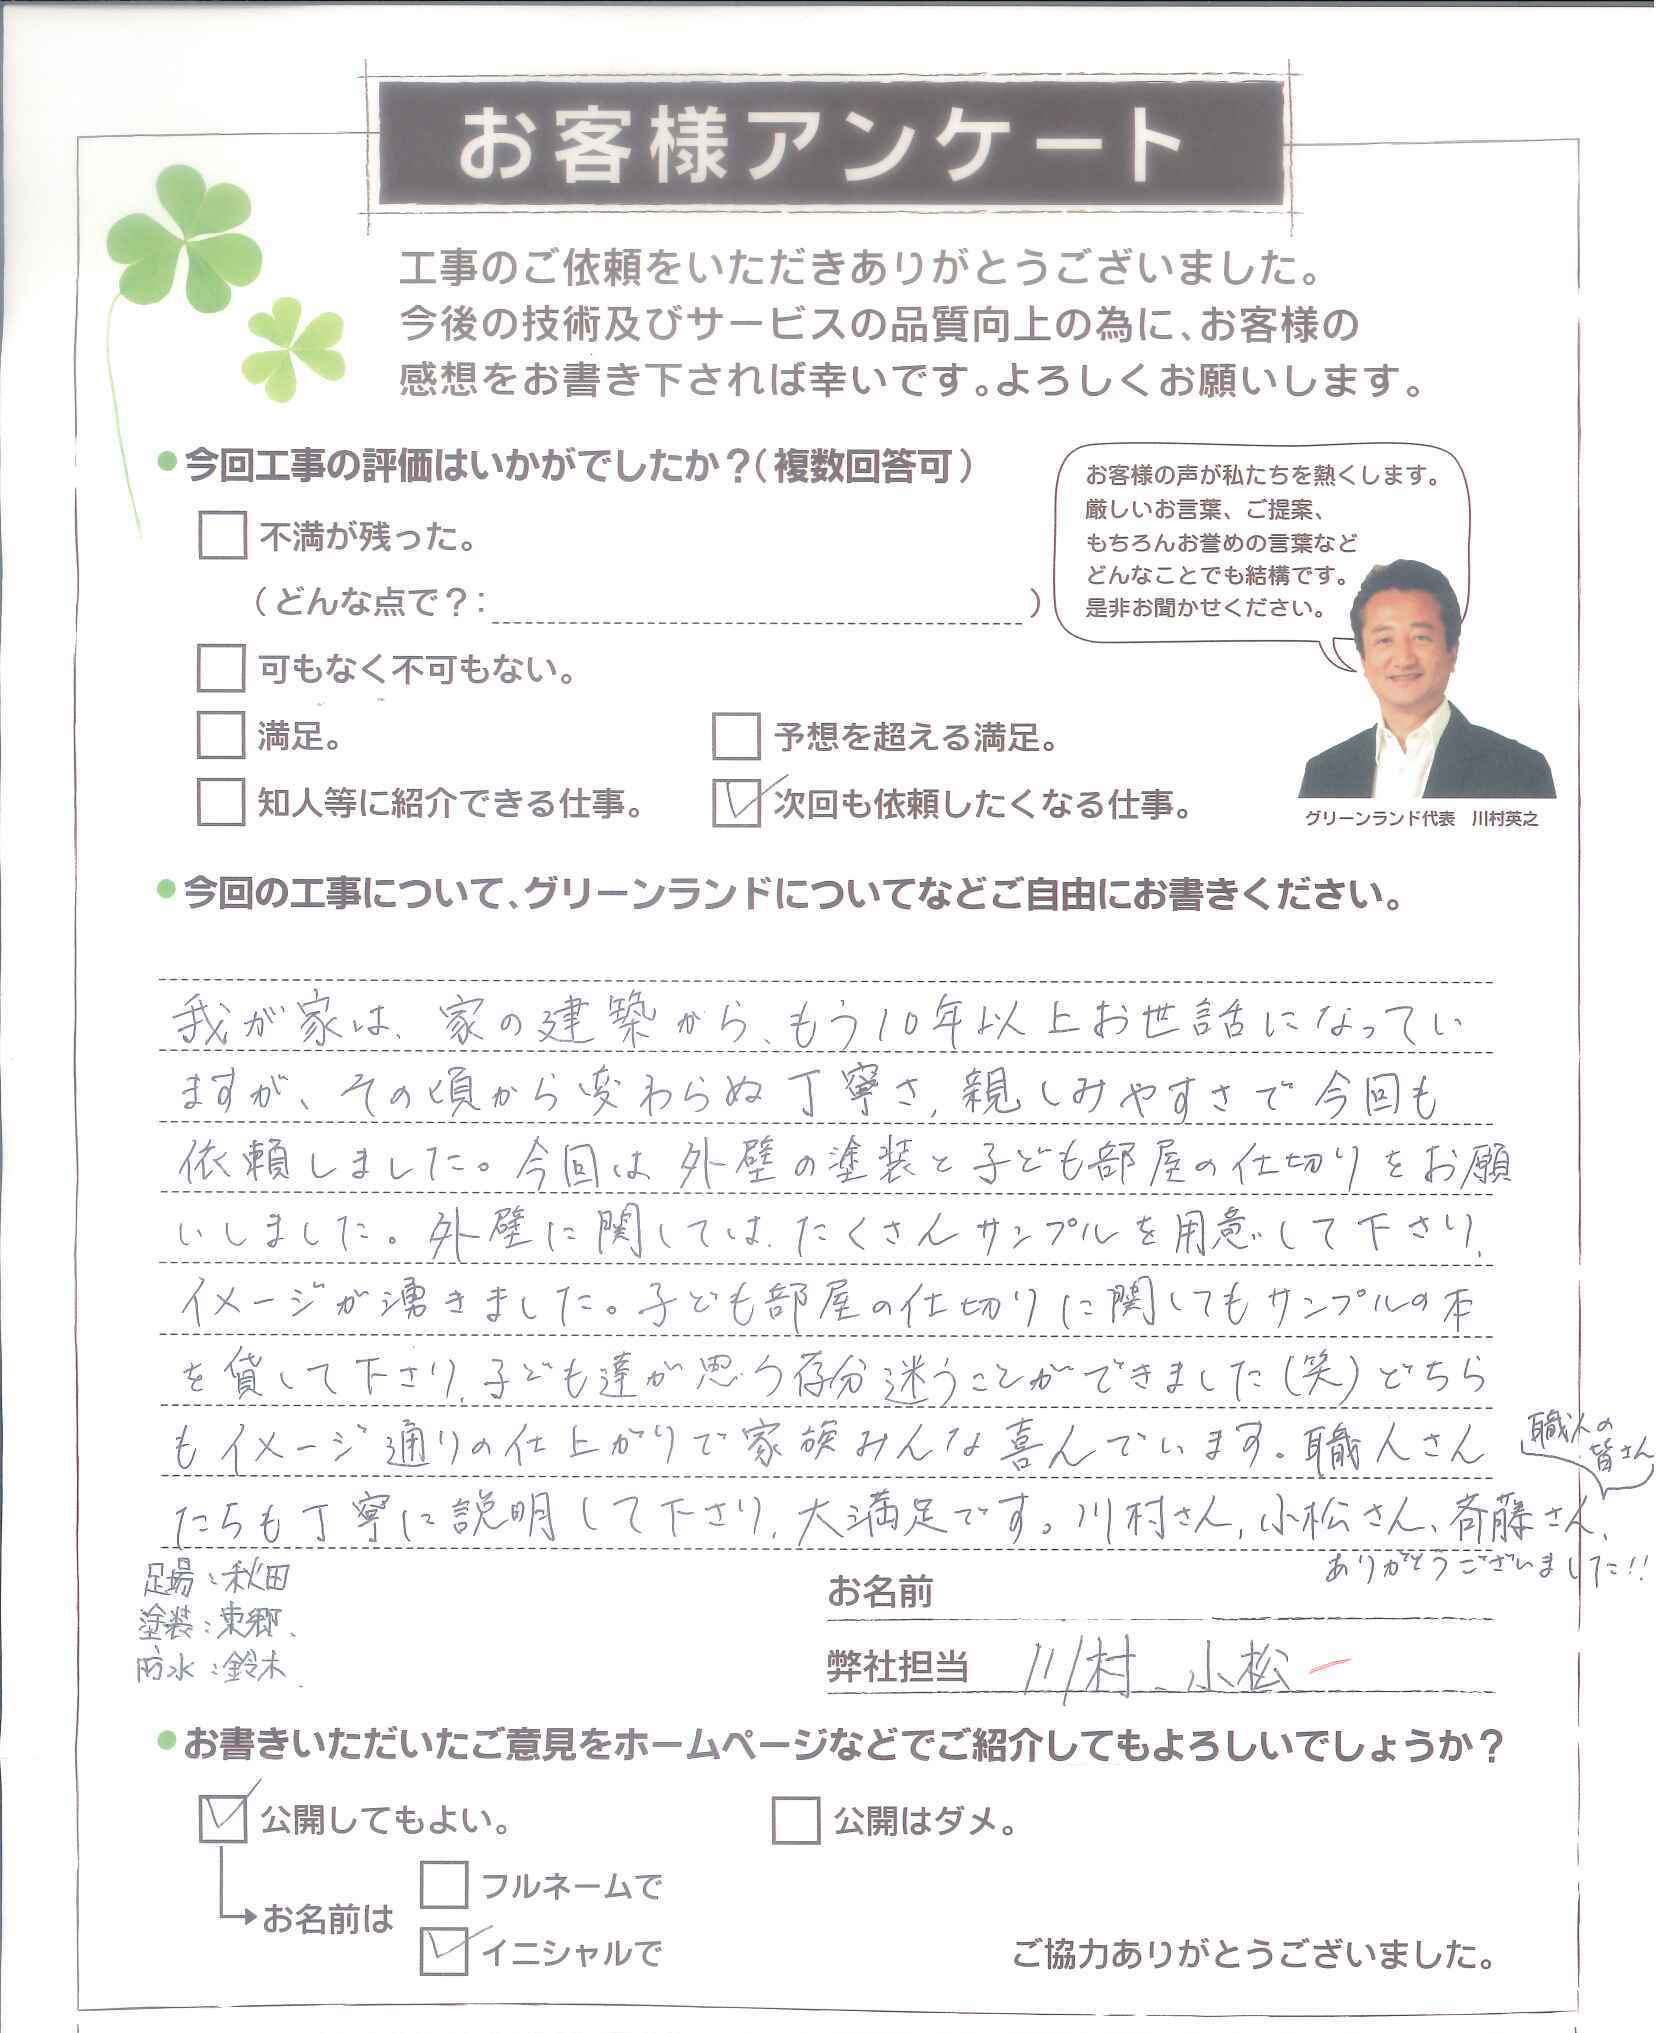 お客様アンケート
工事のご依頼をいただきありがとうございました。
今後の技術及びサービスの品質向上の為に、お客様の
感想をお書き下されば幸いです。よろしくお願いします。
●今回工事の評価はいかがでしたか？（複数回答可）
お客様の声が私たちを熱くします。
厳しいお言葉、ご提案、
もちろんお誉めの言葉など
どんなことでも結構です。
是非お聞かせください。
不満が残った。
（どんな点で？：　）
可もなく不可もない。
満足。
予想を超える満足。
知人等に紹介できる仕事。
次回も依頼したくなる仕事。
グリーンランド代表　川村英之
●今回の工事について、グリーンランドについてなどご自由にお書きください。
我が家は、家の建築から、もう10年以上お世話になってい
ますが、その頃から変わらぬ丁寧さ、親しみやすさで今回も
依頼しました。今回は外壁の塗装と子ども部屋の仕切りをお願
いしました。外壁に関しては、たくさんサンプルを用意して下さり、
イメージが湧きました。子ども部屋の仕切りに関してもサンプルの本
を貸して下さり、子ども達が思う存分迷うことができました(笑)どちら
もイメージ通りの仕上がりで家族みんな喜んでいます。職人さん
職人の
皆さん
たちも丁寧に説明して下さり、大満足です。川村さん、小松さん、斉藤さん、
ありがとうございました!!
足場：秋田
塗装：東郷、
防水：鈴木
お名前
弊社担当　川村、小松
●お書きいただいたご意見をホームページなどでご紹介してもよろしいでしょうか？
公開してもよい。
公開はダメ。
お名前は
フルネームで
イニシャルで
ご協力ありがとうございました。